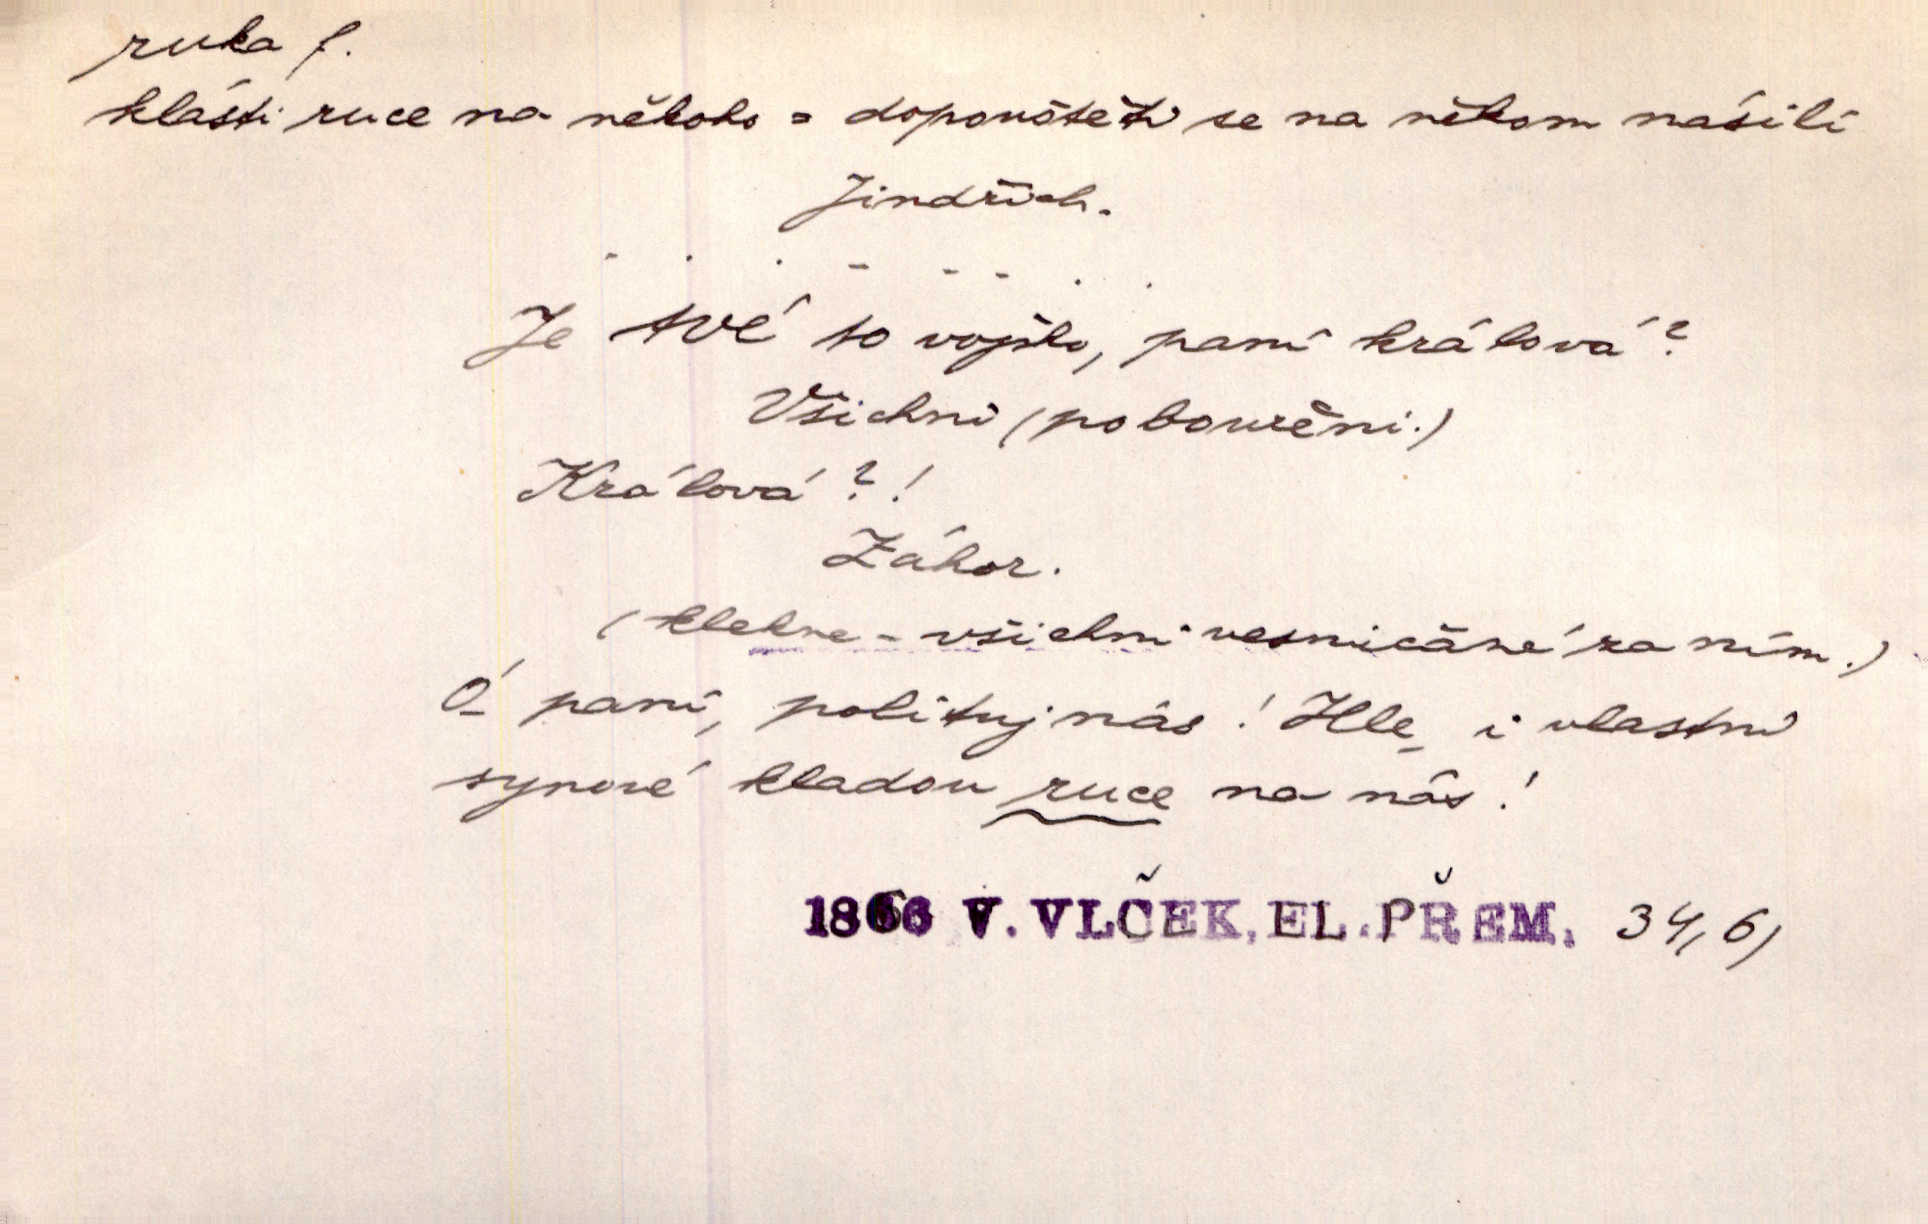 ruka f.
klásti ruce na někoho = dopouštěti se na někom násilí
Jindřich.
. . . - - - . .
Je tvé to vojsko, paní králová?
Všichni (pobouřeni.)
Králová?!
Záhor.
(klekne - všichni vesničané za ním.)
Ó paní, polituj nás! Hle, i vlastní
synové kladou ruce na nás!
1866 V. VLČEK, EL. PŘEM. 34, 6)